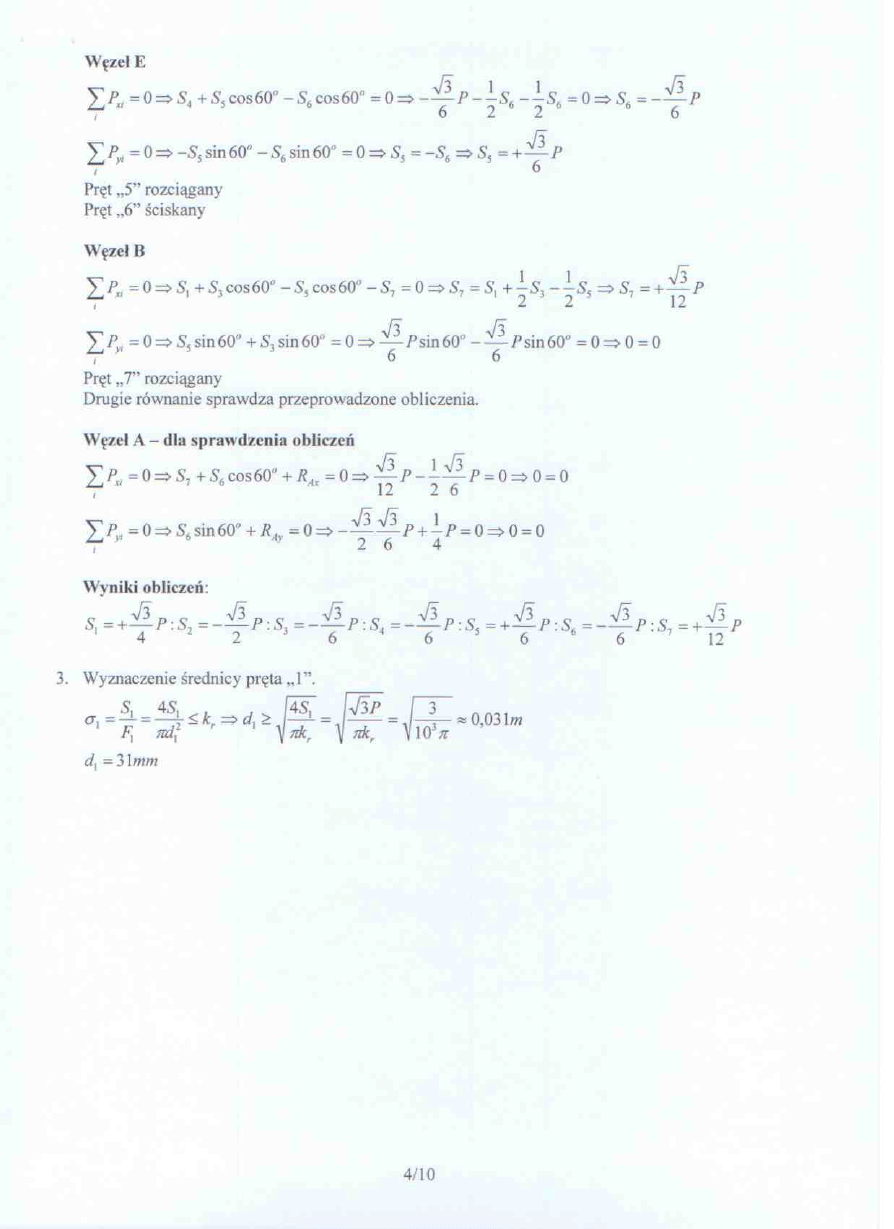 Węzeł E
∑ᵢ Pₓᵢ = 0 ⇒ S₄ + S₅ cos 60° − S₆ cos 60° = 0 ⇒ −(√3/6)P − (1/2)S₆ − (1/2)S₆ = 0 ⇒ S₆ = −(√3/6)P
∑ᵢ Pyᵢ = 0 ⇒ −S₅ sin 60° − S₆ sin 60° = 0 ⇒ S₅ = −S₆ ⇒ S₅ = +(√3/6)P
Pręt „5” rozciągany
Pręt „6” ściskany
Węzeł B
∑ᵢ Pₓᵢ = 0 ⇒ S₁ + S₃ cos 60° − S₅ cos 60° − S₇ = 0 ⇒ S₇ = S₁ + (1/2)S₃ − (1/2)S₅ ⇒ S₇ = +(√3/12)P
∑ᵢ Pyᵢ = 0 ⇒ S₅ sin 60° + S₃ sin 60° = 0 ⇒ (√3/6)P sin 60° − (√3/6)P sin 60° = 0 ⇒ 0 = 0
Pręt „7” rozciągany
Drugie równanie sprawdza przeprowadzone obliczenia.
Węzeł A – dla sprawdzenia obliczeń
∑ᵢ Pₓᵢ = 0 ⇒ S₇ + S₆ cos 60° + R_Ax = 0 ⇒ (√3/12)P − (1/2)(√3/6)P = 0 ⇒ 0 = 0
∑ᵢ Pyᵢ = 0 ⇒ S₆ sin 60° + R_Ay = 0 ⇒ −(√3/2)(√3/6)P + (1/4)P = 0 ⇒ 0 = 0
Wyniki obliczeń:
S₁ = +(√3/4)P : S₂ = −(√3/2)P : S₃ = −(√3/6)P : S₄ = −(√3/6)P : S₅ = +(√3/6)P : S₆ = −(√3/6)P : S₇ = +(√3/12)P
3. Wyznaczenie średnicy pręta „1”.
σ₁ = S₁/F₁ = 4S₁/(πd₁²) ≤ kᵣ ⇒ d₁ ≥ √(4S₁/(πkᵣ)) = √(√3P/(πkᵣ)) = √(3/(10³π)) ≈ 0,031m
d₁ = 31mm
4/10